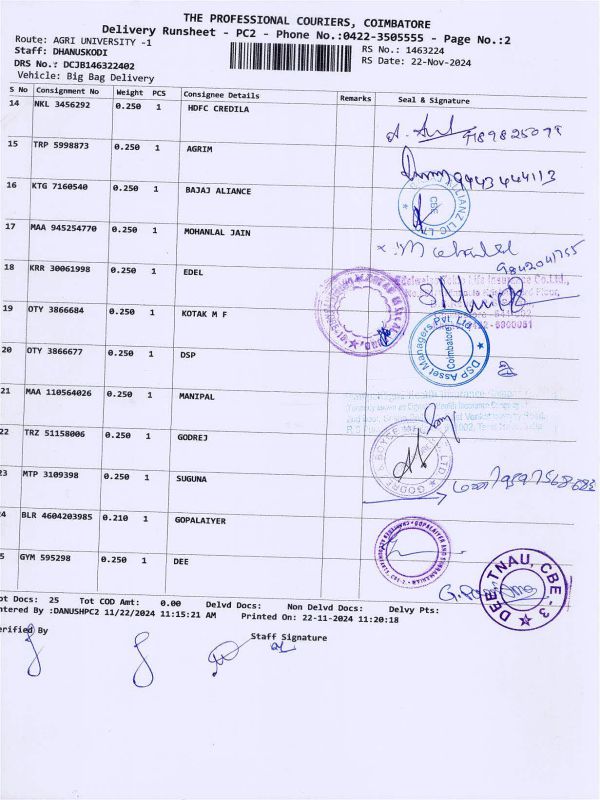 THE PROFESSIONAL COURIERS, COIMBATORE
Delivery Runsheet - PC2 - Phone No.:0422-3505555 - Page No.:2
Route: AGRI UNIVERSITY -1
RS No.: 1463224
Staff: DHANUSKODI
RS Date: 22-Nov-2024
DRS No.: DCJB146322402
Vehicle: Big Bag Delivery
S No Consignment No Weight PCS Consignee Details Remarks Seal & Signature
14 NKL 3456292 0.250 1 HDFC CREDILA
15 TRP 5998873 0.250 1 AGRIM
9943444113
16 KTG 7160540 0.250 1 BAJAJ ALIANCE
17 MAA 945254770 0.250 1 MOHANLAL JAIN
9842041755
18 KRR 30061998 0.250 1 EDEL
19 OTY 3866684 0.250 1 KOTAK M F
20 OTY 3866677 0.250 1 DSP
DSP Asset Managers Pvt. Ltd.
Coimbatore
21 MAA 110564026 0.250 1 MANIPAL
22 TRZ 51158006 0.250 1 GODREJ
23 MTP 3109398 0.250 1 SUGUNA
24 BLR 4604203985 0.210 1 GOPALAIYER
GOPALAIYER AND SUBRAMANIAN
25 GYM 595298 0.250 1 DEE
DEE TNAU, CBE. 3
Tot Docs: 25 Tot COD Amt: 0.00 Delvd Docs: Non Delvd Docs: Delvy Pts:
Entered By :DANUSHPC2 11/22/2024 11:15:21 AM Printed On: 22-11-2024 11:20:18
Verified By
Staff Signature